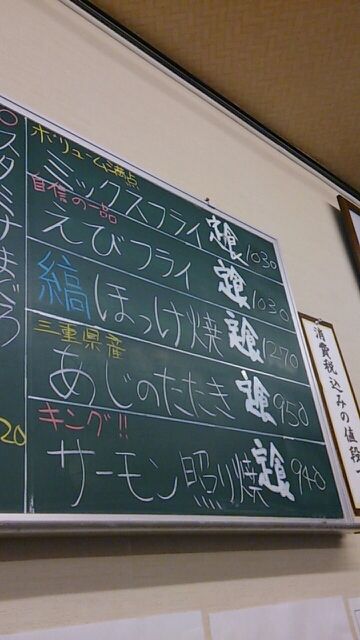 ボリューム満点
ミックスフライ 定食 1030
自信の一品
えびフライ 定食 1030
縞ほっけ焼 定食 1270
三重県産
あじのたたき 定食 950
キング!!
サーモン照り焼 定食 940
スタミナまぐろ
20
消費税込みの値段